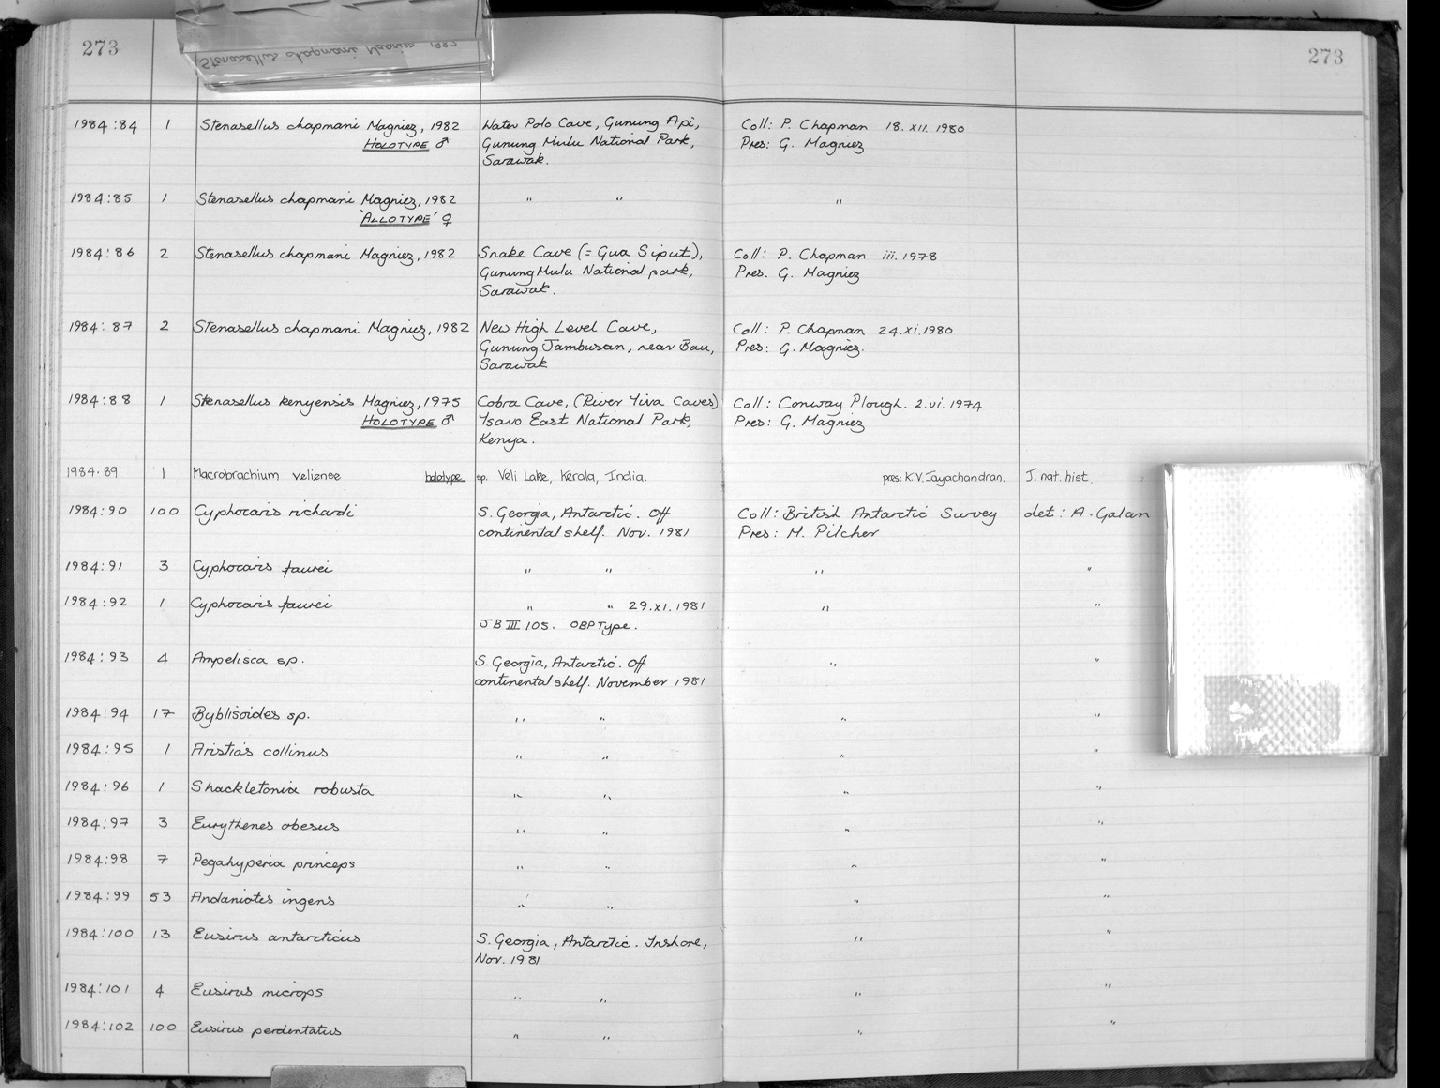 273
273
1984:84 1 Stenasellus chapmani Magniez, 1982 Water Polo Cave, Gunung Api, Coll: P. Chapman 18.xii.1980
HOLOTYPE ♂ Gunung Mulu National Park, Pres: G. Magniez
Sarawak.
1984:85 1 Stenasellus chapmani Magniez, 1982 " " "
'ALLOTYPE' ♀
1984:86 2 Stenasellus chapmani Magniez, 1982 Snake Cave (= Gua Siput), Coll: P. Chapman iii.1978
Gunung Mulu National park, Pres. G. Magniez
Sarawak.
1984:87 2 Stenasellus chapmani Magniez, 1982 New High Level Cave, Coll: P. Chapman 24.xi.1980
Gunung Jambusan, near Bau, Pres: G. Magniez.
Sarawak
1984:88 1 Stenasellus kenyensis Magniez, 1975 Cobra Cave, (River Tiva Caves) Coll: Conway Plough. 2.vi.1974
HOLOTYPE ♂ Tsavo East National Park, Pres: G. Magniez
Kenya.
1984:89 1 Macrobrachium veliense holotype sp. Veli Lake, Kerala, India. pres: K.V. Jayachandran. J. nat. hist.
1984:90 100 Cyphocaris richardi S. Georgia, Antarctic. Off Coll: British Antarctic Survey det: A. Galan
continental shelf. Nov. 1981 Pres: M. Pilcher
1984:91 3 Cyphocaris faurei " " " "
1984:92 1 Cyphocaris faurei " " 29.xi.1981 " "
JB III 105. OBP Type.
1984:93 4 Ampelisca sp. S. Georgia, Antarctic. Off " "
continental shelf. November 1981
1984:94 17 Byblisoides sp. " " " "
1984:95 1 Aristias collinus " " " "
1984:96 1 Shackletonia robusta " " " "
1984:97 3 Eurythenes obesus " " " "
1984:98 7 Pegahyperia princeps " " " "
1984:99 53 Andaniotes ingens " " " "
1984:100 13 Eusirus antarcticus S. Georgia, Antarctic. Inshore, " "
Nov. 1981
1984:101 4 Eusirus microps " " " "
1984:102 100 Eusirus perdentatus " " " "